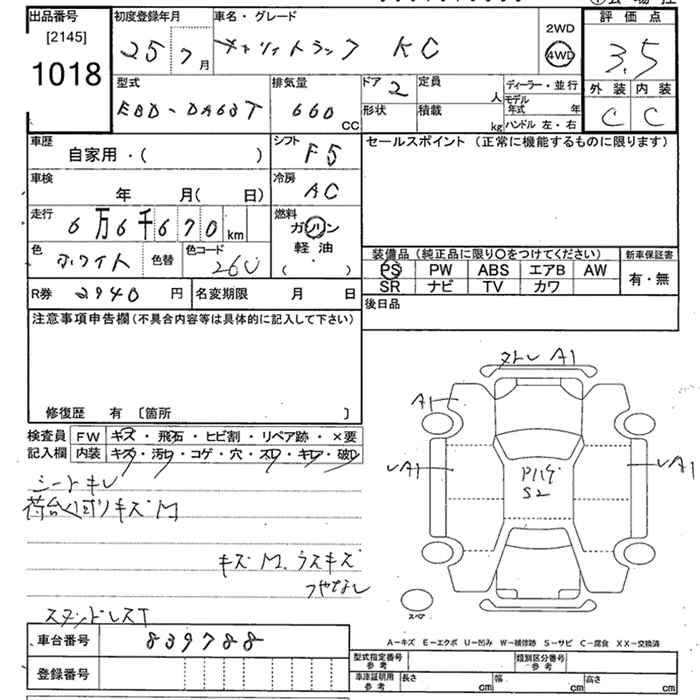 出品番号 初度登録年月 車名・グレード 2WD 評価点
[2145] 25 7月 キャリィトラック KC 4WD 3.5
1018
型式 排気量 ドア 2 定員 人 ディーラー・並行 外装 内装
EBD-DA63T 660 CC 形状 積載 kg モデル年式 年 C C
ハンドル 左・右
車歴 自家用・( ) シフト F5 セールスポイント (正常に機能するものに限ります)
車検 年 月( 日) 冷房 AC
走行 6万6千670km 燃料 ガソリン
軽油
( )
色 ホワイト 色替 色コード 26U
装備品(純正品に限り〇をつけてください) 新車保証書
PS PW ABS エアB AW 有・無
SR ナビ TV カワ
R券 2940円 名変期限 月 日 後日品
注意事項申告欄(不具合内容等は具体的に記入して下さい)
修復歴 有 〔箇所 〕
検査員 FW キズ・飛石・ヒビ割・リペア跡・×要
記入欄 内装 キズ・汚レ・コゲ・穴・スレ・キレ・破レ
シートキレ
荷台 キズM
キズM. ウスキズ
ツヤなし
A1
A1
A1
A1
S2
スペア
A-キズ E-エクボ U-凹み W-補修跡 S-サビ C-腐食 XX-交換済
車台番号 839788
登録番号
型式指定番号 参考 類別区分番号 参考
車庫証明用 参考 長さ cm 幅 cm 高さ cm